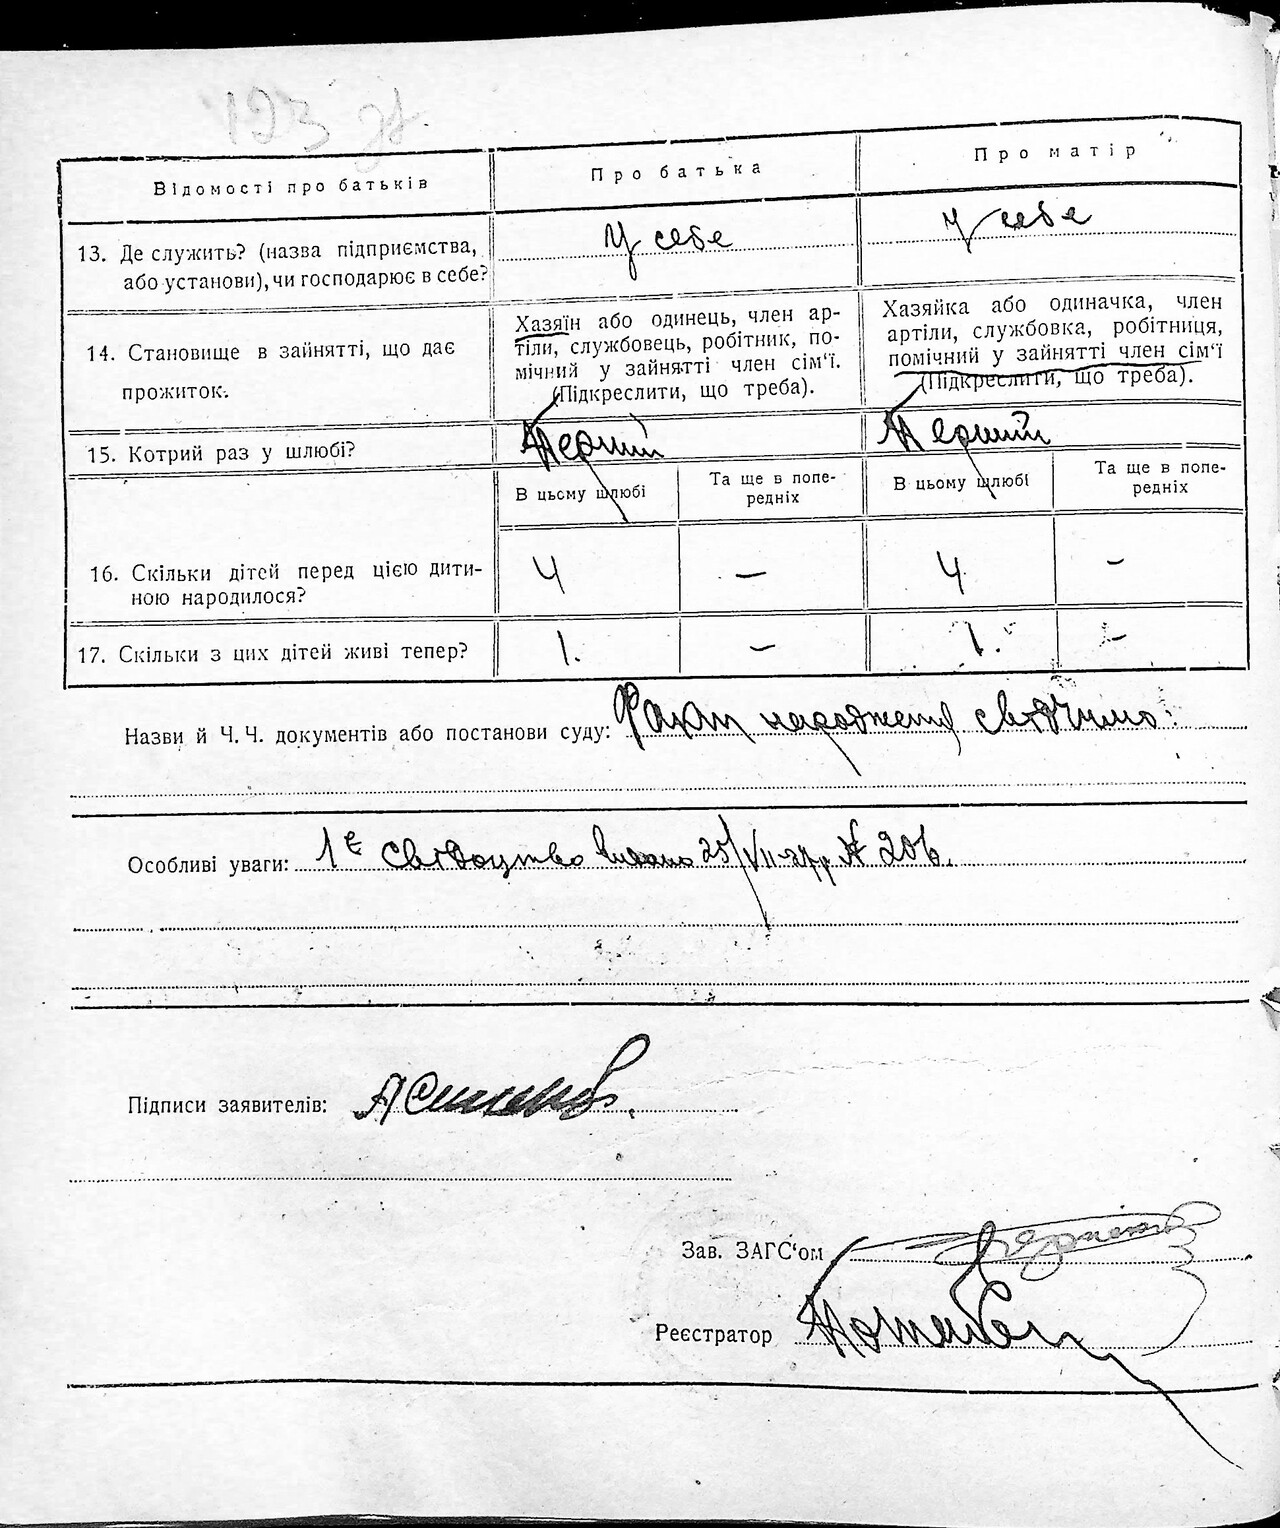 123 зв.
Відомості про батьків
Про батька
Про матір
13. Де служить? (назва підприємства, або установи), чи господарює в себе?
У себе
У себе
14. Становище в зайнятті, що дає прожиток.
Хазяїн або одинець, член ар-
тіли, службовець, робітник, по-
мічний у зайнятті член сім'ї.
(Підкреслити, що треба).
Хазяйка або одиначка, член
артіли, службовка, робітниця,
помічний у зайнятті член сім'ї
(Підкреслити, що треба).
15. Котрий раз у шлюбі?
Перший
Перший
В цьому шлюбі
Та ще в попе-
редніх
В цьому шлюбі
Та ще в попе-
редніх
16. Скільки дітей перед цією дити-
ною народилося?
4
—
4
-
17. Скільки з цих дітей живі тепер?
1.
—
1.
-
Назви й Ч. Ч. документів або постанови суду: Факт народження свідчимо.
Особливі уваги: 1е свідоцтво видано 25/VII-27р № 206.
Підписи заявителів:
Зав. ЗАГС'ом
Реєстратор